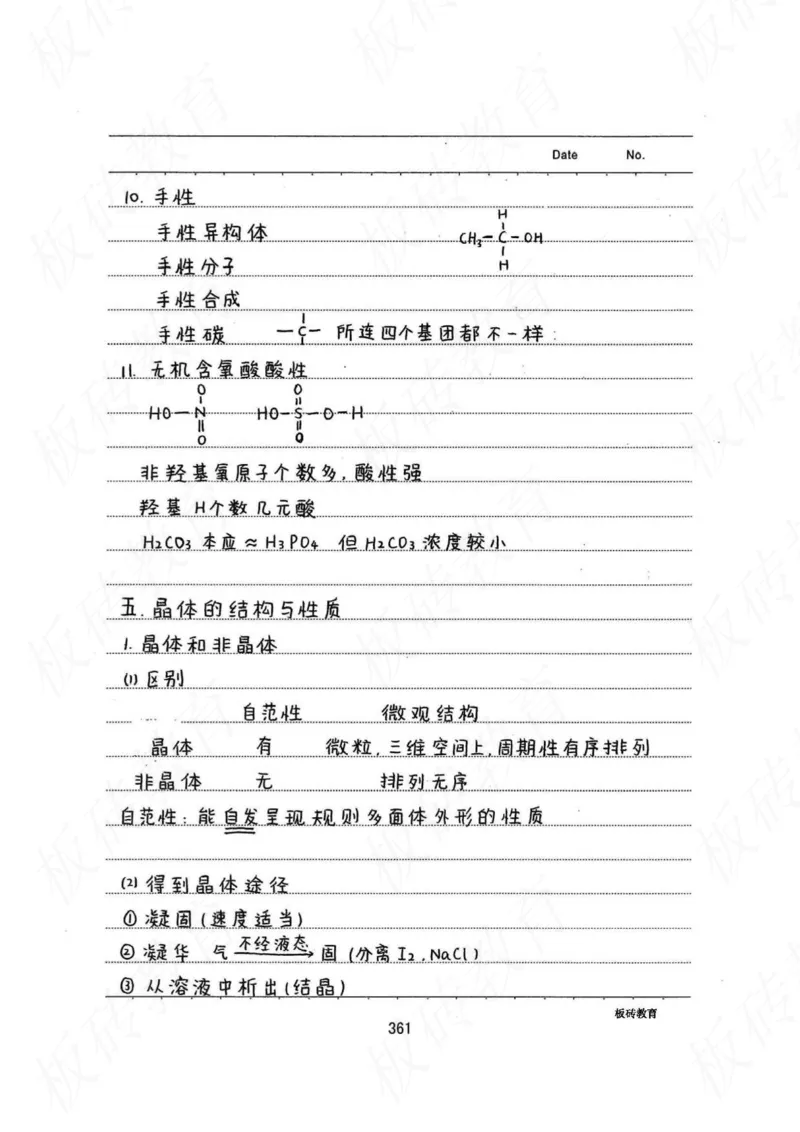 Date No.
10. 手性
手性异构体
H
CH3-C-OH
H
手性分子
手性合成
手性碳 -C- 所连四个基团都不一样
11. 无机含氧酸酸性
O O
HO-N HO-S-O-H
O O
非羟基氧原子个数多,酸性强
羟基H个数几元酸
H2CO3 本应≈H3PO4 但H2CO3浓度较小
五.晶体的结构与性质
1. 晶体和非晶体
(1) 区别
自范性 微观结构
晶体 有 微粒,三维空间上,周期性有序排列
非晶体 无 排列无序
自范性:能自发呈现规则多面体外形的性质
(2) 得到晶体途径
①凝固(速度适当)
②凝华 气 不经液态→ 固 (分离I2,NaCl)
③从溶液中析出(结晶)
板砖教育
361